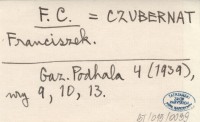 F. C. = CZUBERNAT
Franciszek.
Gaz. Podhala 4 (1939),
nry 9, 10, 13.